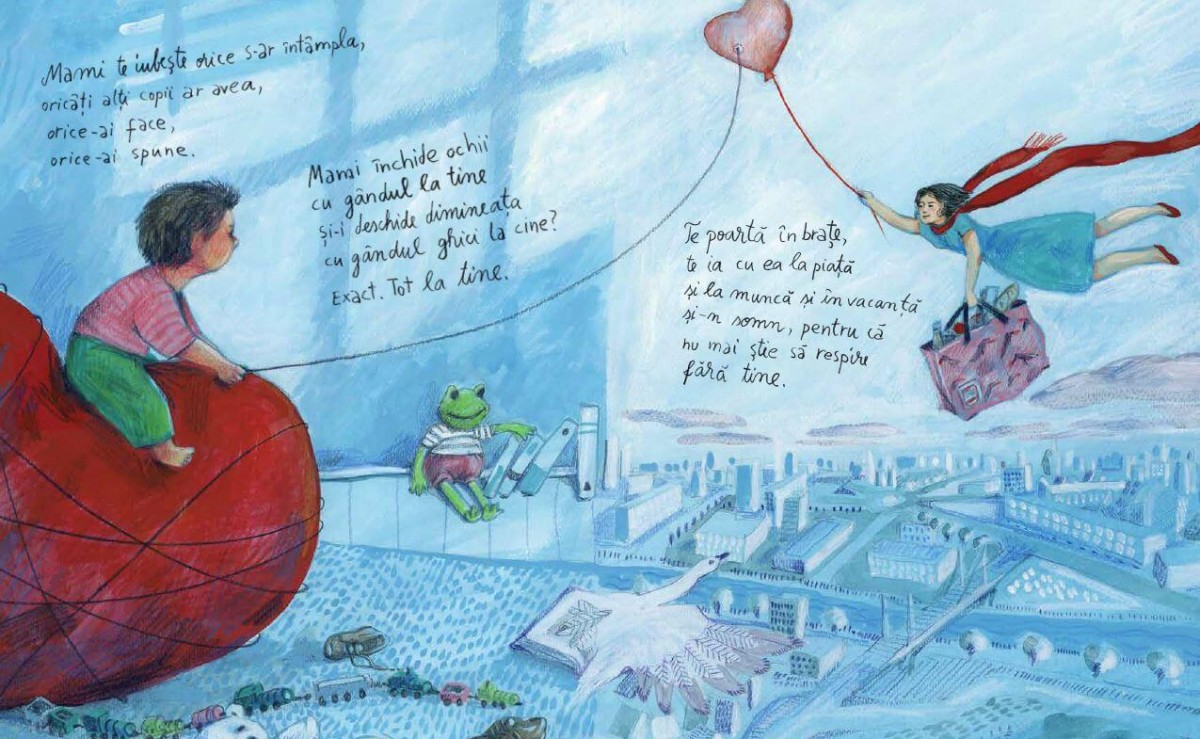 Mami te iubește orice s-ar întâmpla,
oricâți alți copii ar avea,
orice-ai face,
orice-ai spune.
Mami închide ochii
cu gândul la tine
și-i deschide dimineața
cu gândul ghici la cine?
Exact. Tot la tine.
Te poartă în brațe,
te ia cu ea la piață
și la muncă și în vacanță
și-n somn, pentru că
nu mai știe să respire
fără tine.